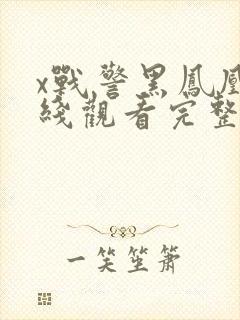 x戰警黑鳳凰
綫觀看完整
一笑笙簫